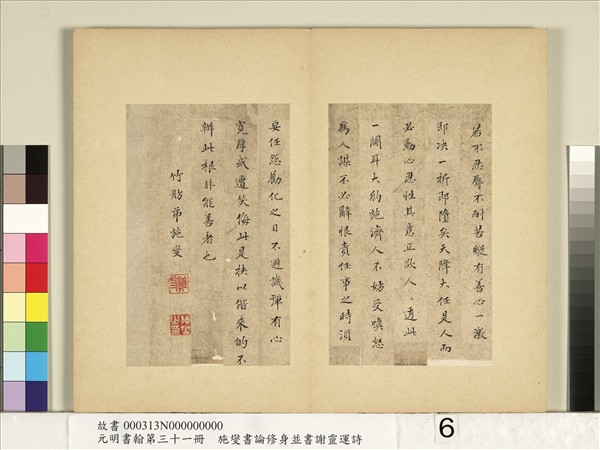 若不忍辱不耐苦縱有善心一激
即決一折即隳矣天降大任是人而
必動心忍性其意正欲人透此
一關耳大約施濟人不妨受嗔怒
為人謀不必辭恨責任事之時須
要任怨勸化之日不避譏彈有心
寬厚或遭笑侮此是挾以偕來的不
辦此根非能善者也
竹舫弟施燮
故書 000313N000000000
元明書翰第三十一冊 施燮書論修身並書謝靈運詩
6